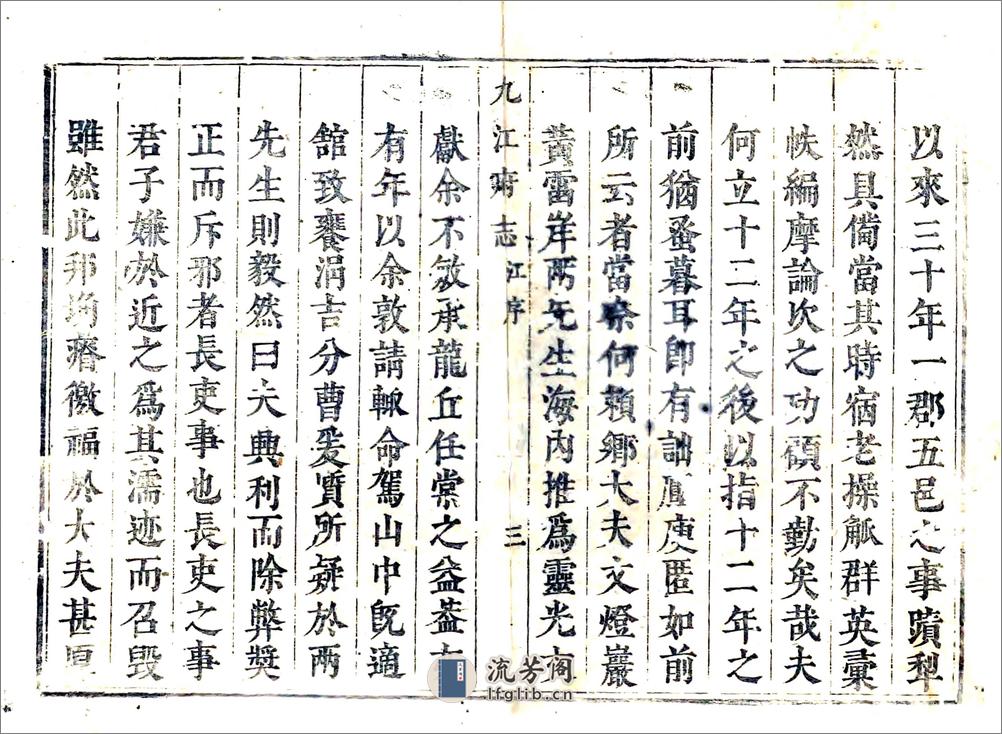 以來三十年一郡五邑之事蹟犁
然具僃當其時宿老操觚群英彙
帙編摩論次之功顧不勤矣哉夫
何立十二年之後以指十二年之
前猶蚤暮耳卽有詘贗庚匿如前
所云者當柰何賴鄉大夫文燈巖
黃雷岸兩先生海內推爲靈光
九江府志 江序 三
獻余不敏承龍丘任棠之益葢
有年以余敦請輙命駕山中旣適
舘致饔涓吉分曹爰質所疑於兩
先生則毅然曰夫興利而除弊奬
正而斥邪者長吏事也長吏之事
君子嫌於近之爲其濡迹而召毀
雖然此邦埆瘠徼福於大夫甚
流芳阁
lfglib.cn